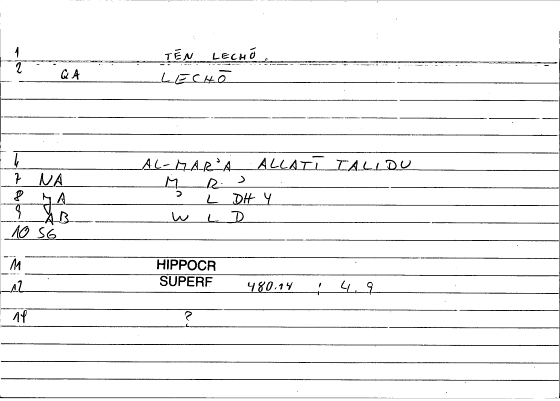 1 TĒN LECHṒ.
2 QA LECHŌ
6 AL-MARʾA ALLATĪ TALIDU
7 NA M R ʾ
8 MA ʾ L DH Y
9 AB W L D
10 SG
11 HIPPOCR
12 SUPERF 480.14 ; 4.9
14 ?